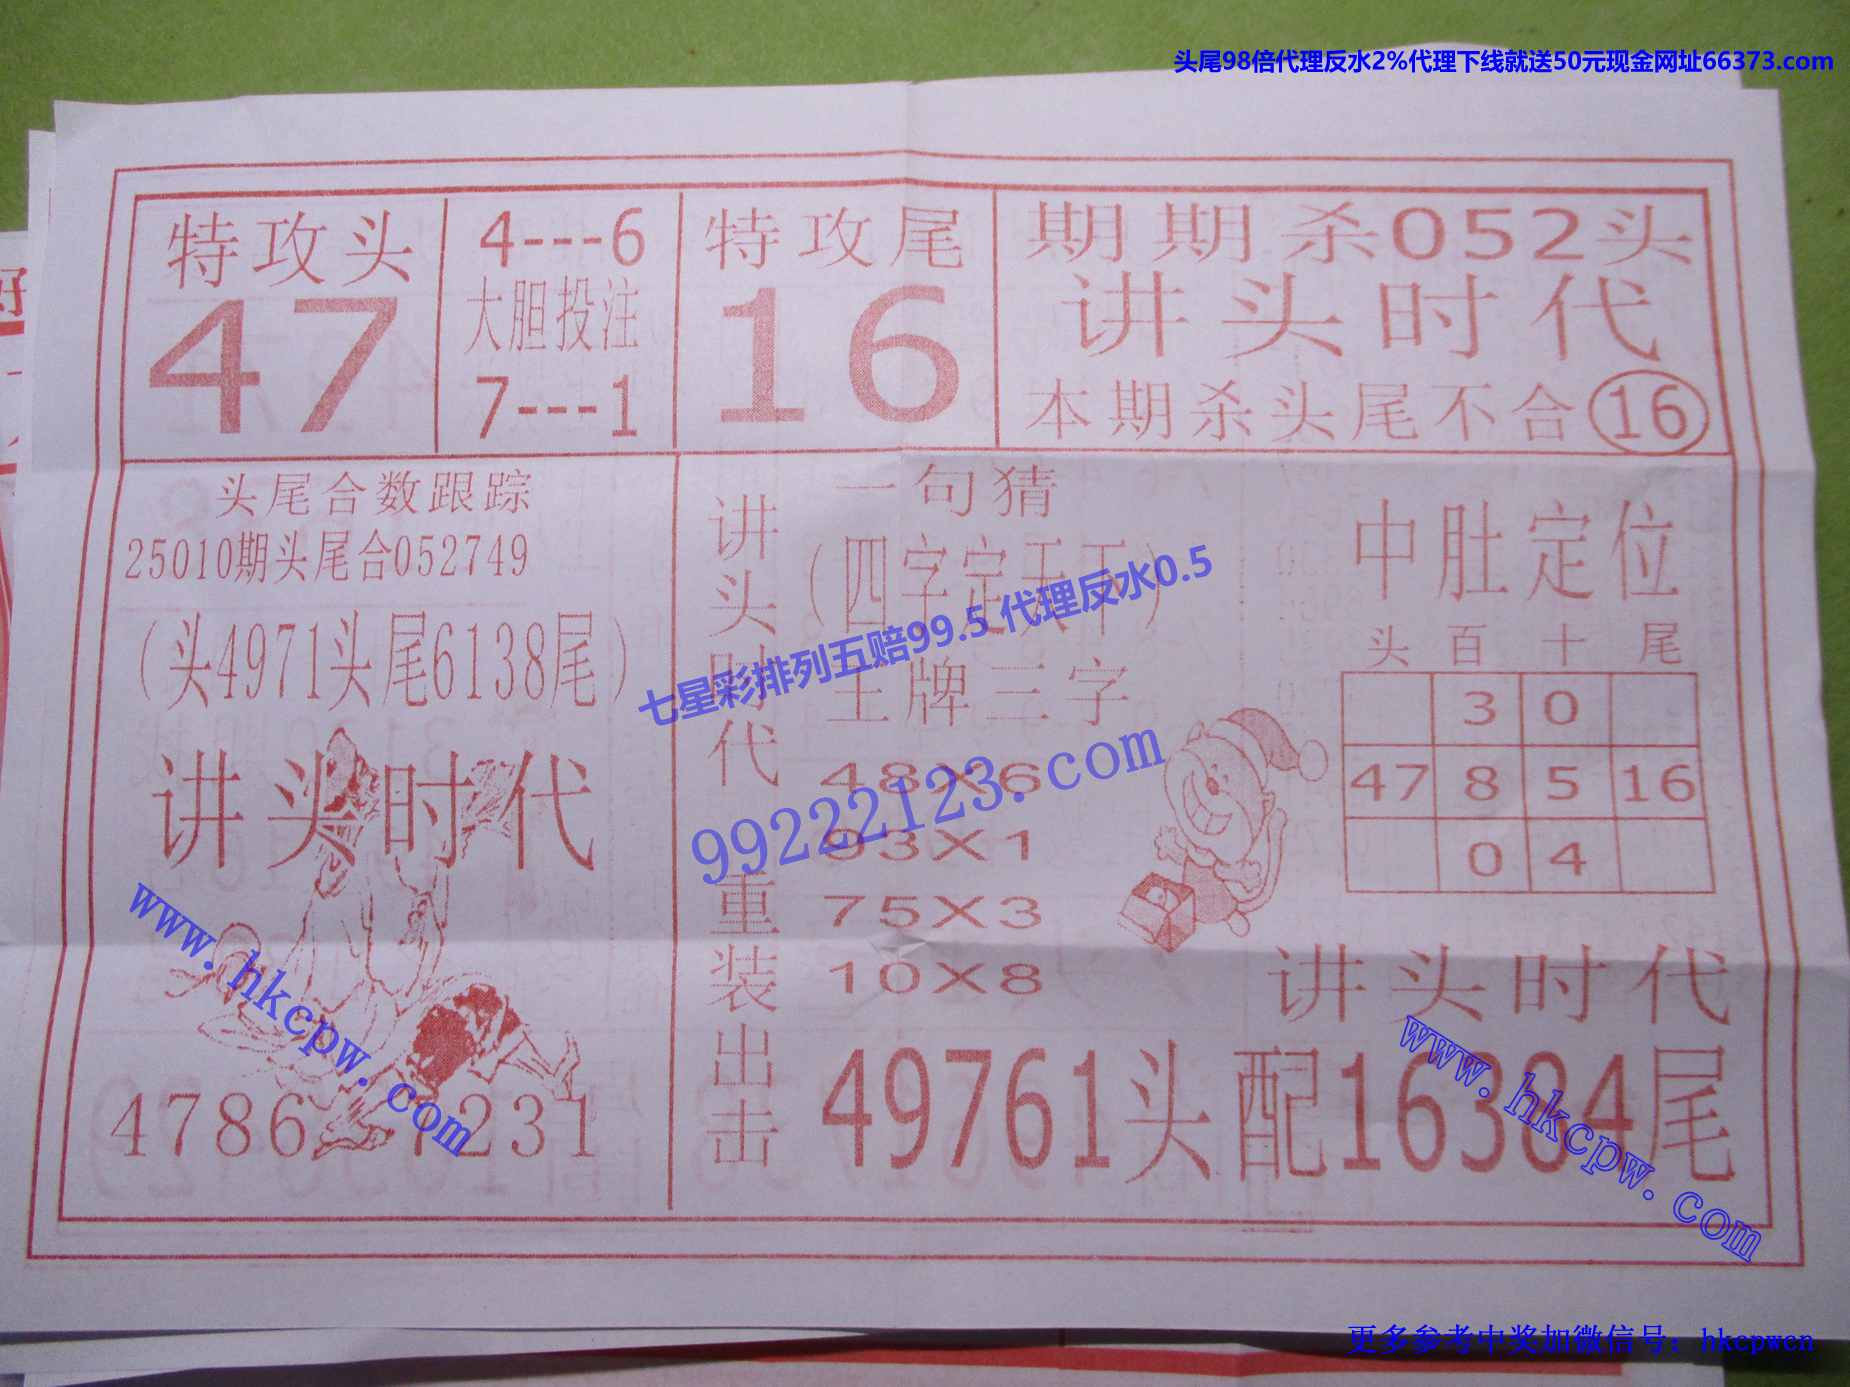 头尾98倍代理反水2%代理下线就送50元现金网址66373.com
特攻头
47
4---6
大胆投注
7---1
特攻尾
16
期期杀052头
讲头时代
本期杀头尾不合16
头尾合数跟踪
25010期头尾合052749
（头4971头尾6138尾）
讲头时代
4786 1231
讲头时代重装出击
一句猜
（四字定天下）
王牌三字
48X6
93X1
75X3
10X8
中肚定位
头 百 十 尾
3 0
47 8 5 16
0 4
讲头时代
49761头配16384尾
七星彩排列五赔99.5 代理反水0.5
99222123.com
www.hkcpw.com
www.hkcpw.com
更多参考中奖加微信号：hkcpwcn